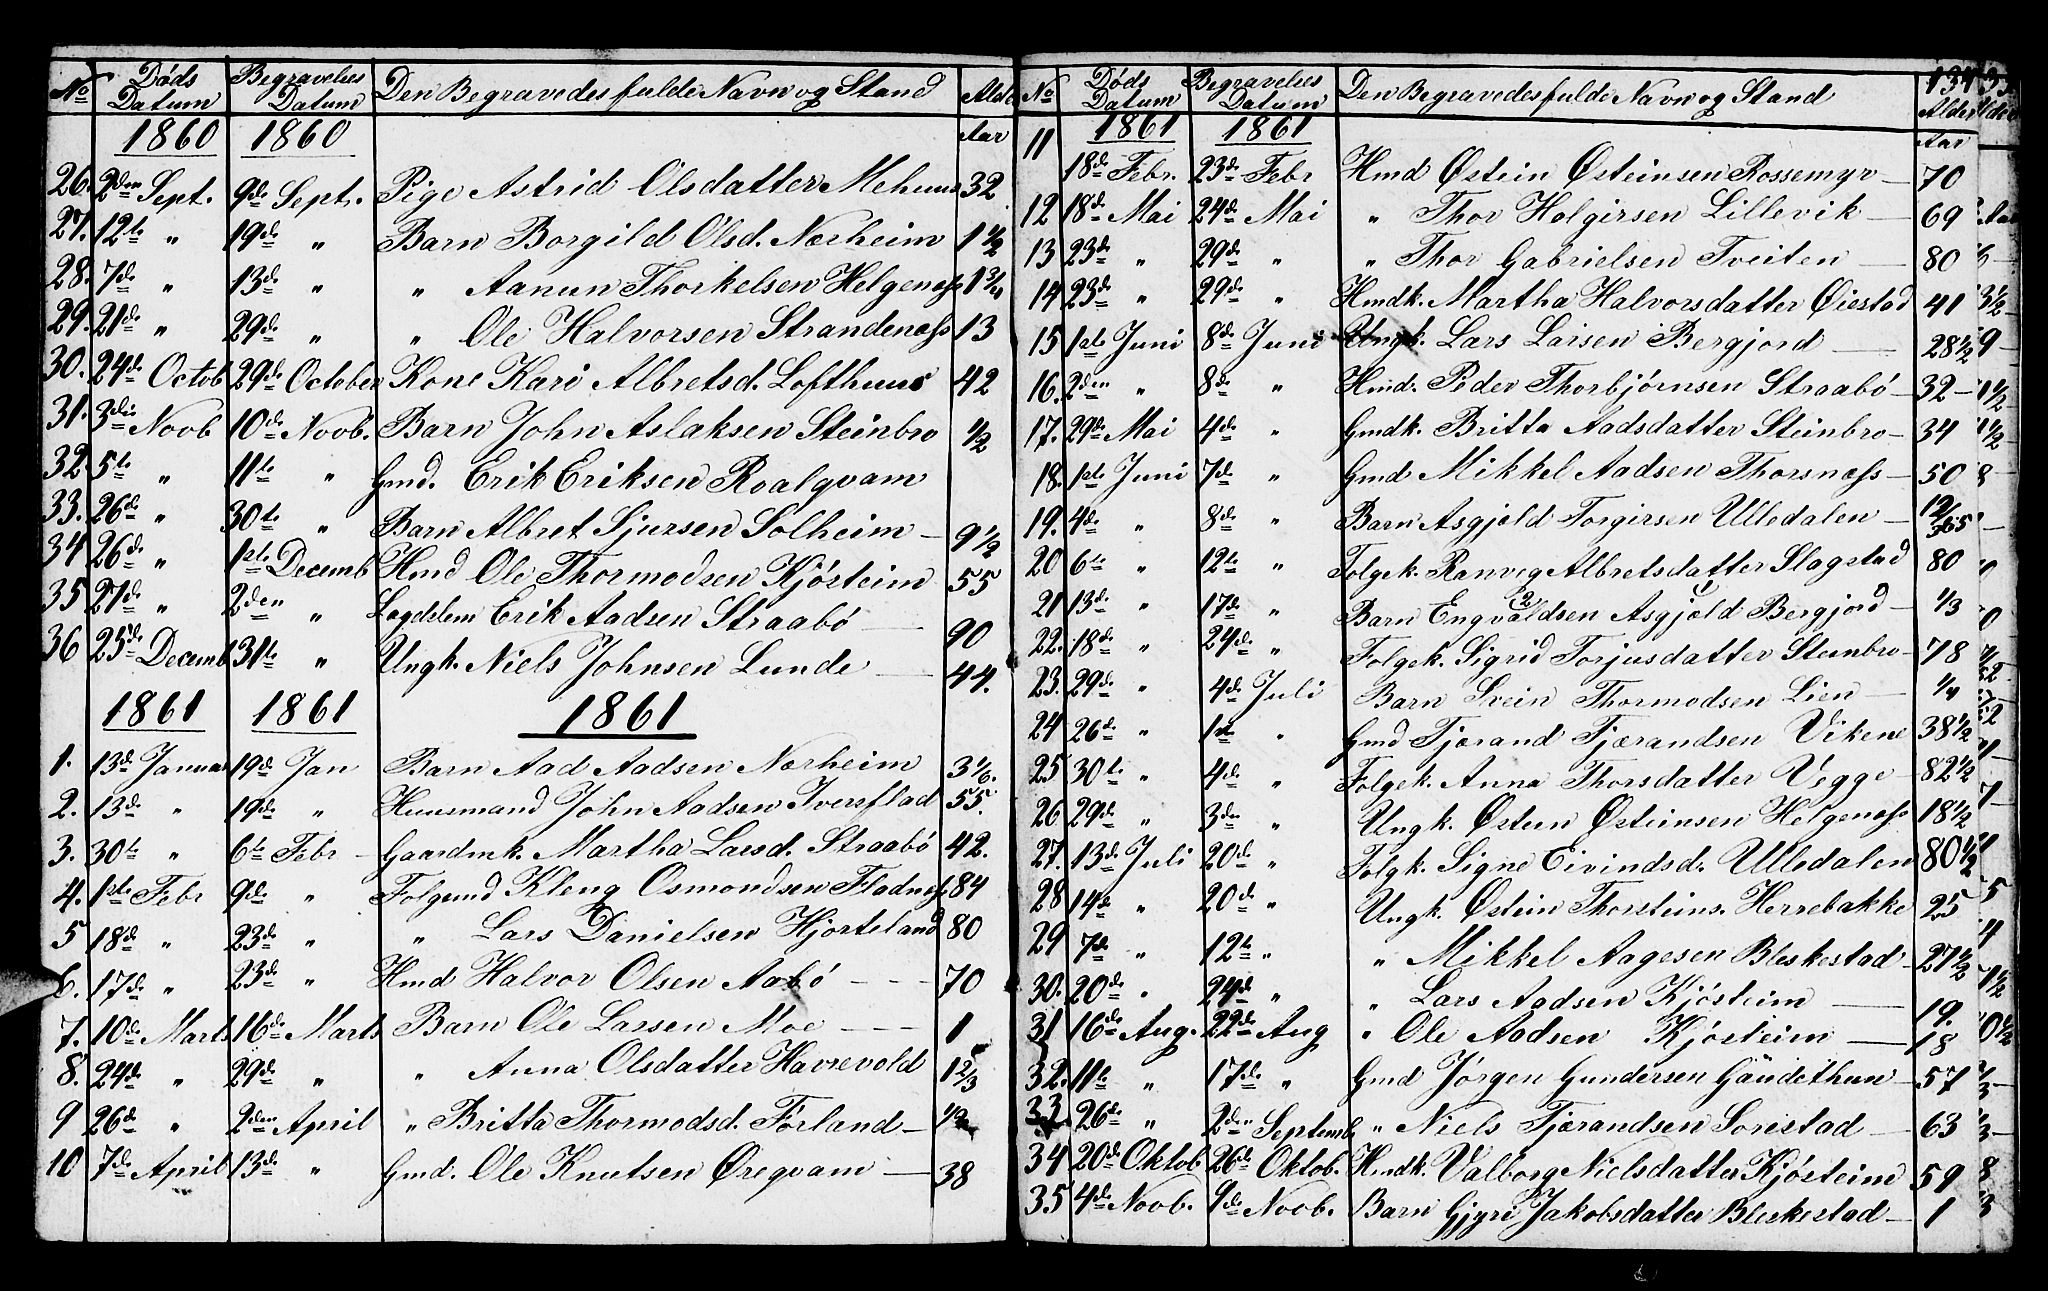 No Døds Datum Begravelses Datum Den Begravedes fulde Navn og Stand Alder
1860 1860 Aar
26. 2den Sept. 9de Sept. Pige Astrid Olsdatter Mehuus 32
27. 12te " 19de " Barn Borgild Olsd. Nærheim 1 1/2
28. 7de " 13de " " Aanun Thorkelsen Helgenæss 1 3/4
29. 21de " 29de " " Ole Halvorsen Strandenæss 13
30. 24de Octob 29de October Kone Kari Albretsd. Lofthuus 42
31. 3die Novb 10de Novb. Barn John Aslaksen Steinbro 1/2
32. 5te " 11te " Gmd. Erik Eriksen Roalqvam
33. 26de " 30te " Barn Albret Sjursen Solheim – 9 1/2
34 26de " 1ste Decemb Hmd Ole Thormodsen Kjösteim 55
35 27de " 2den " Lægdslem Erik Aadsen Straabö — 90
36 25de Decemb 31te " Ungk. Niels Johnsen Lunde — 44.
1861 1861 1861
1. 13de Januar 19de Jan Barn Aad Aadsen Nærheim 3 1/6.
2. 13de " 19de " Huusmand John Aadsen Iversflad 55.
3. 30te " 6te Febr – Gaardmk. Martha Larsd. Straabö 42.
4. 1ste Febr 9de " Folgemd Kleng Osmondsen Fladnæss 84
5 18de " 23de " " Lars Danielsen Hjorteland 80
6. 17de " 23de " Hmd Halvor Olsen Aabö - - - 70
7. 10de Marts 16de Marts Barn Ole Larsen Moe - - - 1
8. 24de " 29de " " Anna Olsdatter Havrevold 1 2/3
9 26de " 2den April " Britta Thormodsd. Förland – 1/2
10 7de April 13de " Gmd. Ole Knutsen Øreqvam — 38
134
No Døds Datum Begravelses Datum Den Begravedes fulde Navn og Stand Alder
1861 1861 Aar
11 18de Febr. 23de Febr Hmd Østein Østeinsen Rossemyr — 70
12 18de Mai 24de Mai " Thor Holgirsen Lillevik — 69
13 23de " 29de " " Thor Gabrielsen Tveiten — 80
14 23de " 29de " Hmdk. Martha Halvorsdatter Øiestad 41
15 1ste Juni 8de Juni Ungk. Lars Larsen Bergjord — 28 1/2
16. 2den " 8de " Hmd. Peder Thorbjörnsen Straabö – 32 –
17. 29de Mai 4de " Gmdk. Britta Aadsdatter Steinbro – 34
18. 1ste Juni 7de " Gmd Mikkel Aadsen Thorsnæss – 50
19. 4de " 8de " Barn Asgjeld Torgirsen Ulledalen – 12/365
20 6te " 12te " Folgek. Ranveg Albretsdatter Slagstad 80
21 13de " 17de " Barn Engvaldsen Asgjeld Bergjord – 1/3
22. 18de " 24de " Folgek. Sigrid Torjusdatter Steinbro – 78
23. 29de " 4de Juli Barn Svein Thormodsen Lien — 1/4
24 26de " 1ste " Gmd Tjærand Tjærandsen Vikene 38 1/2
25 30te " 4de " Folgek. Anna Thorsdatter Vegge – 82 1/2
26 29de " 3die " Ungk. Østein Østeinsen Helgenæss 18 1/2
27. 13de Juli 20de " Folgk. Signe Eivindsd. Ulledalen 80 1/2
28 14de " 20de " Ungk. Østein Thorsteins. Herrebakke 25
29 7de " 12te " " Mikkel Aagesen Bleskestad – 27 1/2
30. 20de " 24de " " Lars Aadsen Kjösteim — 19.
31 16de Aug. 22de Aug " Ole Aadsen Kjösteim — 18
32. 11te " 17de " Gmd Jörgen Gundersen Gaudethun – 57
33 26de " 2den Septemb " Niels Tjærandsen Sørestad — 63
34 20de Oktob 26de Oktob. Hmdk. Valborg Nielsdatter Kjösteim 59
35 4de Novb. 9de Novb. Barn Gjyri Jakobsdatter Bleskestad – 1